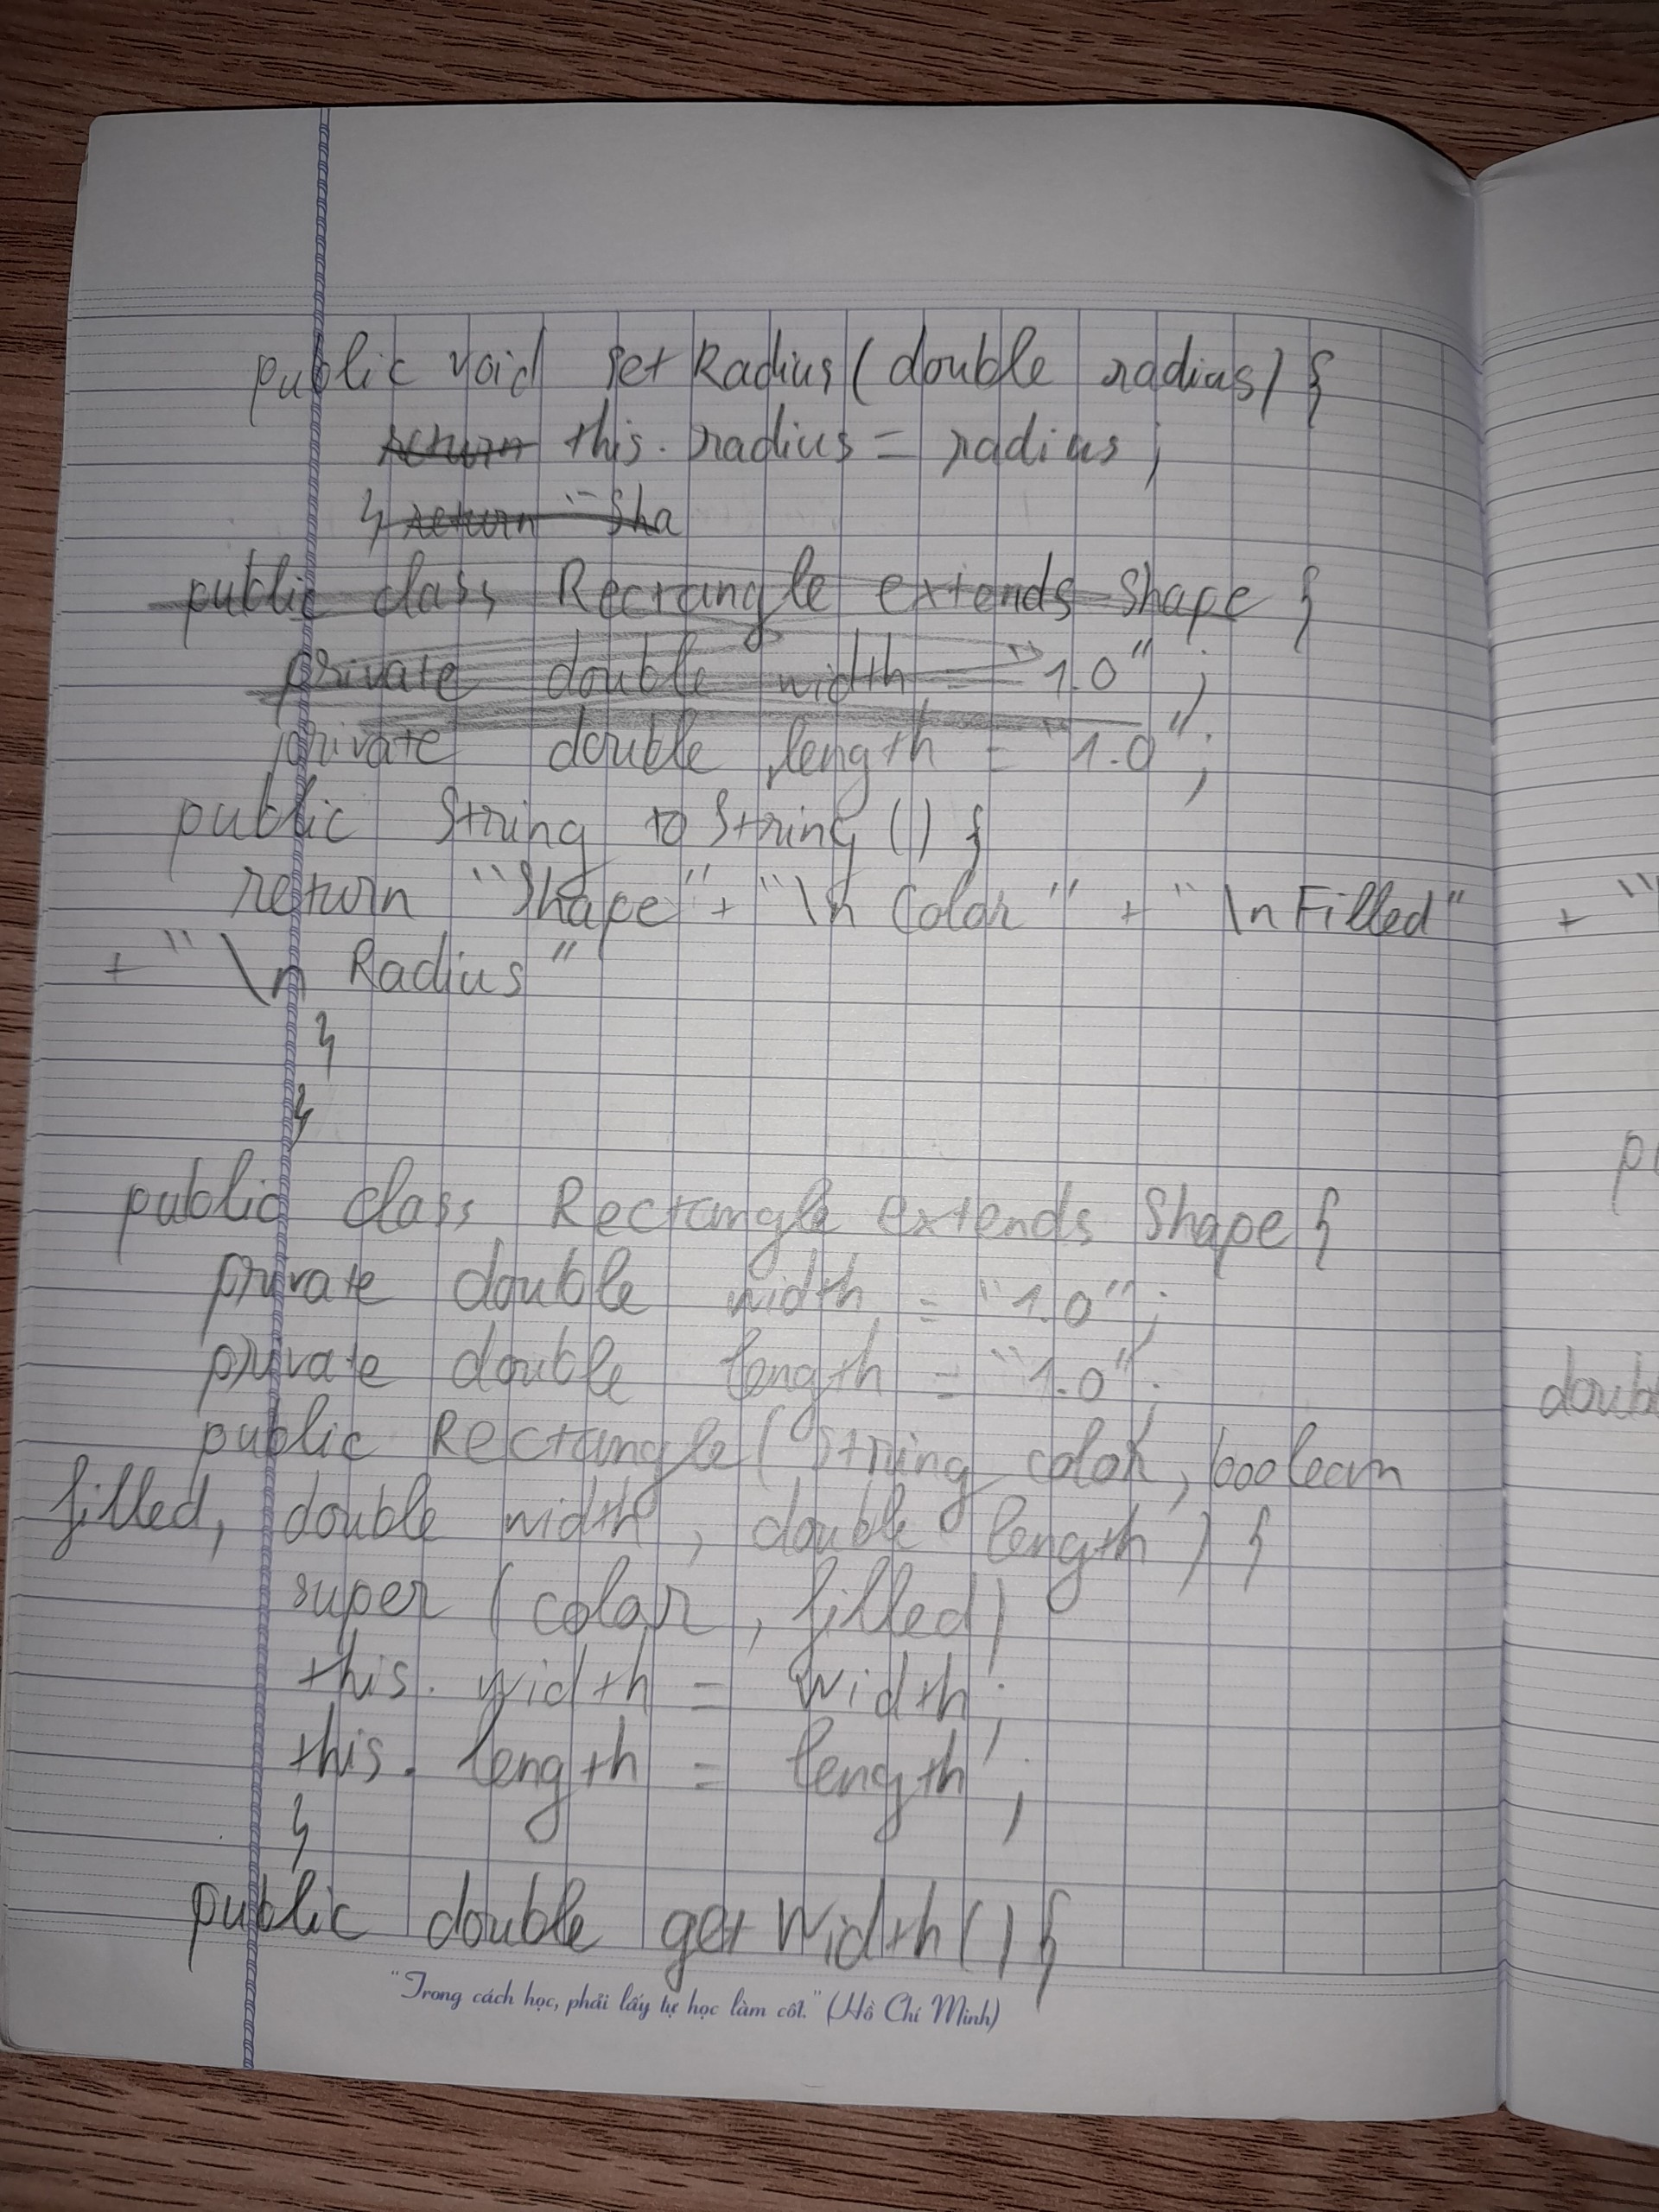 public void setRadius(double radius) {
return this.radius = radius;
} return "Sha
public class Rectangle extends Shape {
private double width = "1.0";
private double length = "1.0";
public String toString() {
return "Shape" + "\n Color" + "\n Filled" + "
+ "\n Radius"
}
}
public class Rectangle extends Shape {
private double width = "1.0";
private double length = "1.0";
public Rectangle(String color, boolean
filled, double width, double length) {
super (color, filled)
this.width = width;
this.length = length;
}
public double getWidth() {
"Trong cách học, phải lấy tự học làm cốt." (Hồ Chí Minh)